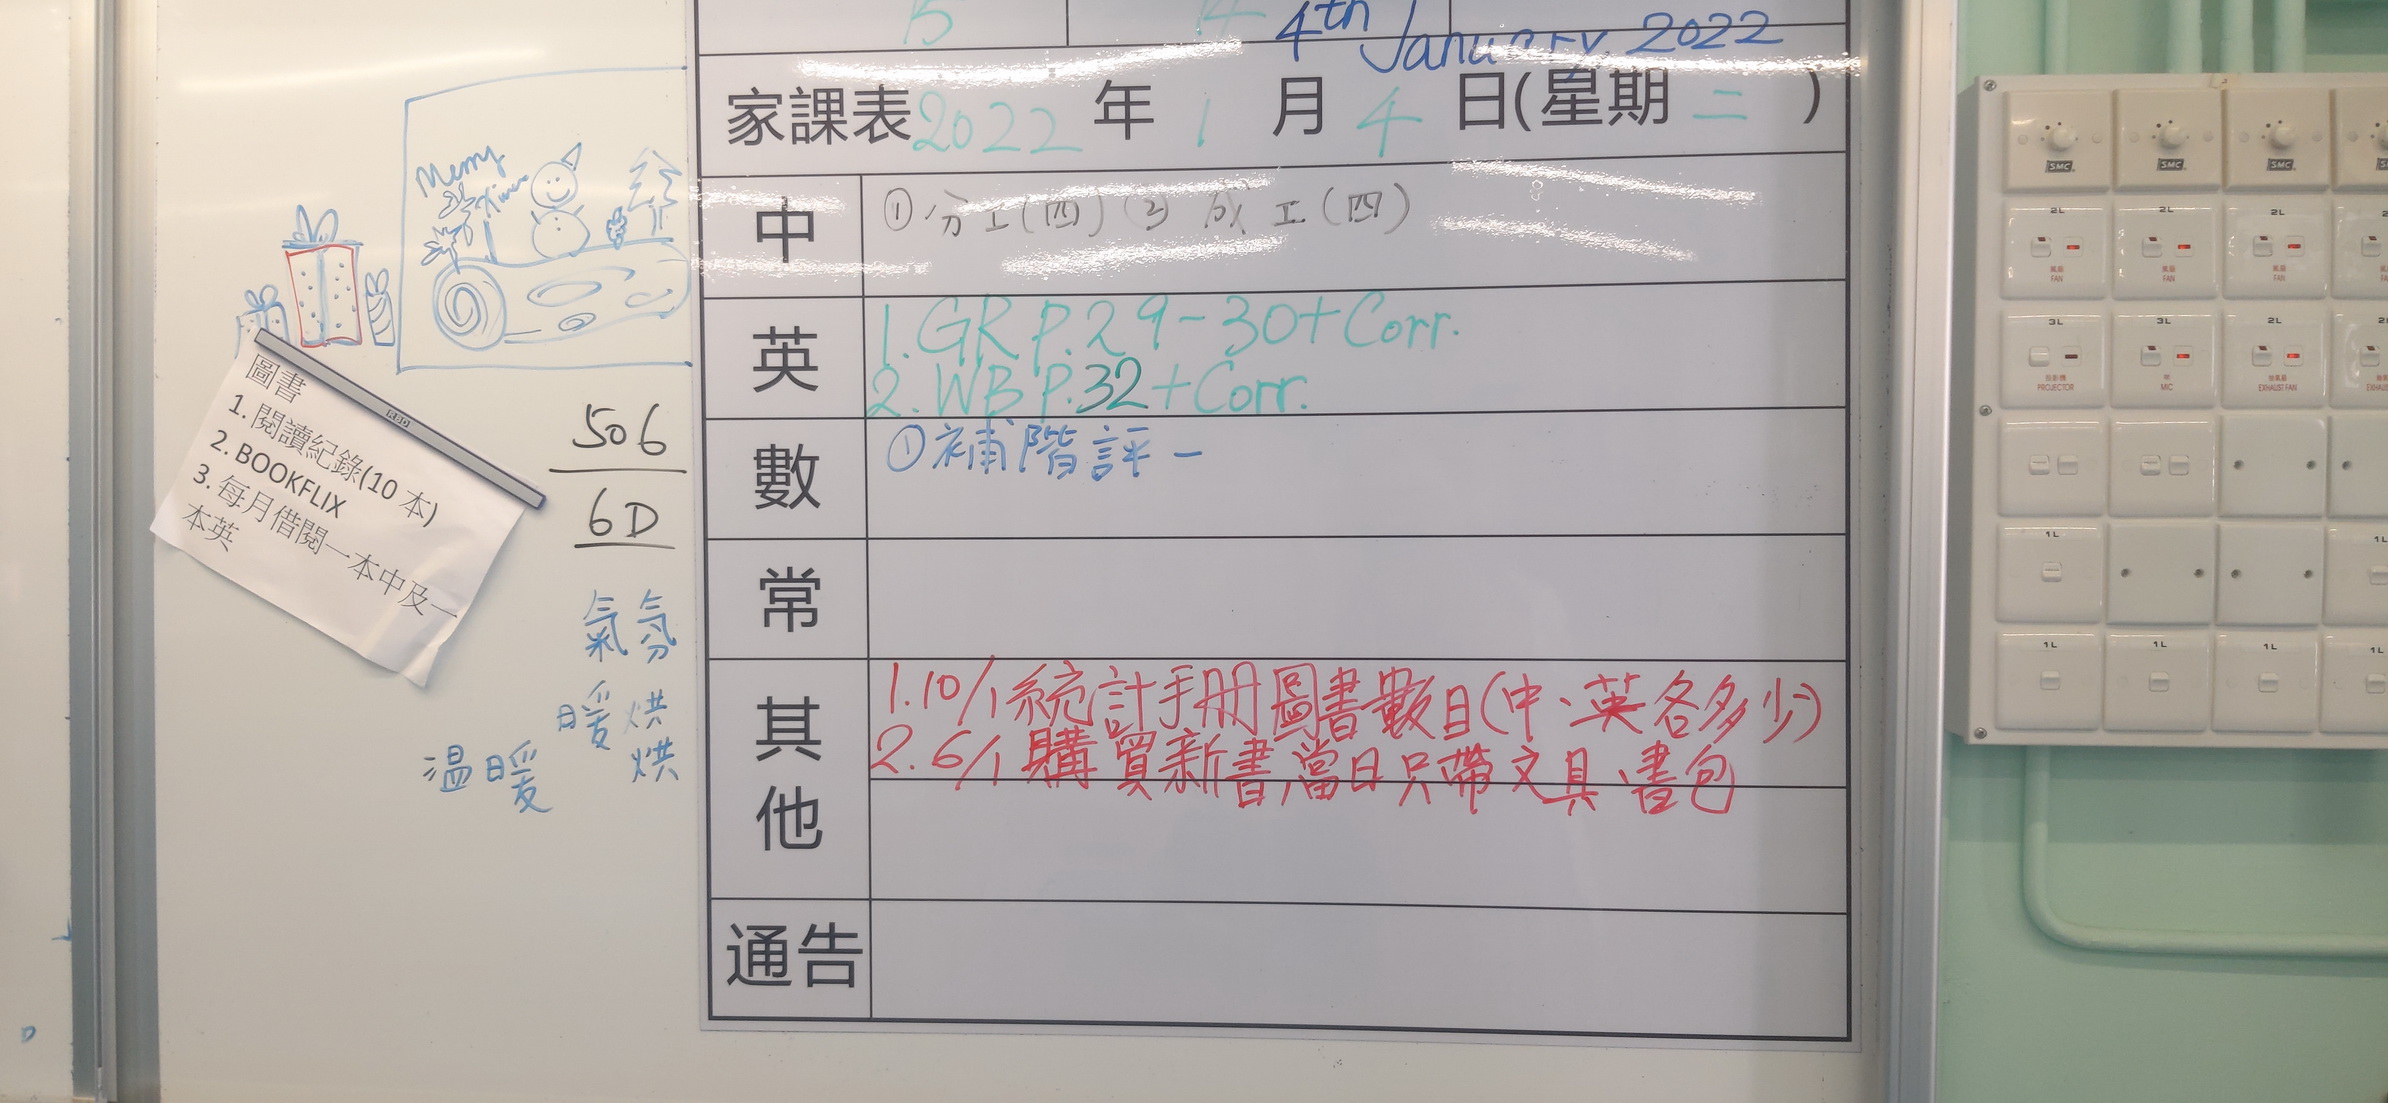 15 14
4th January, 2022
家課表2022年1月4日(星期二)
中 ①分工(四) ② 成工(四)
英 1.GR P.29-30+Corr.
2.WB P.32+Corr.
數 ①補階評一
常
其他 1.10/1統計手冊圖書數目(中、英各多少)
2.6/1購買新書,當日只帶文具、書包
通告
Merry
圖書
1. 閱讀紀錄(10 本)
2. BOOKFLIX
3. 每月借閱一本中及一
本英
506
6D
氣氛
暖烘
烘
温暖
SMC SMC SMC
2L 2L 2L
風扇 風扇 風扇
FAN FAN FAN
3L 3L 2L
投影機 抽氣扇
PROJECTOR MIC EXHAUST FAN
1L 1L
1L 1L 1L 1L